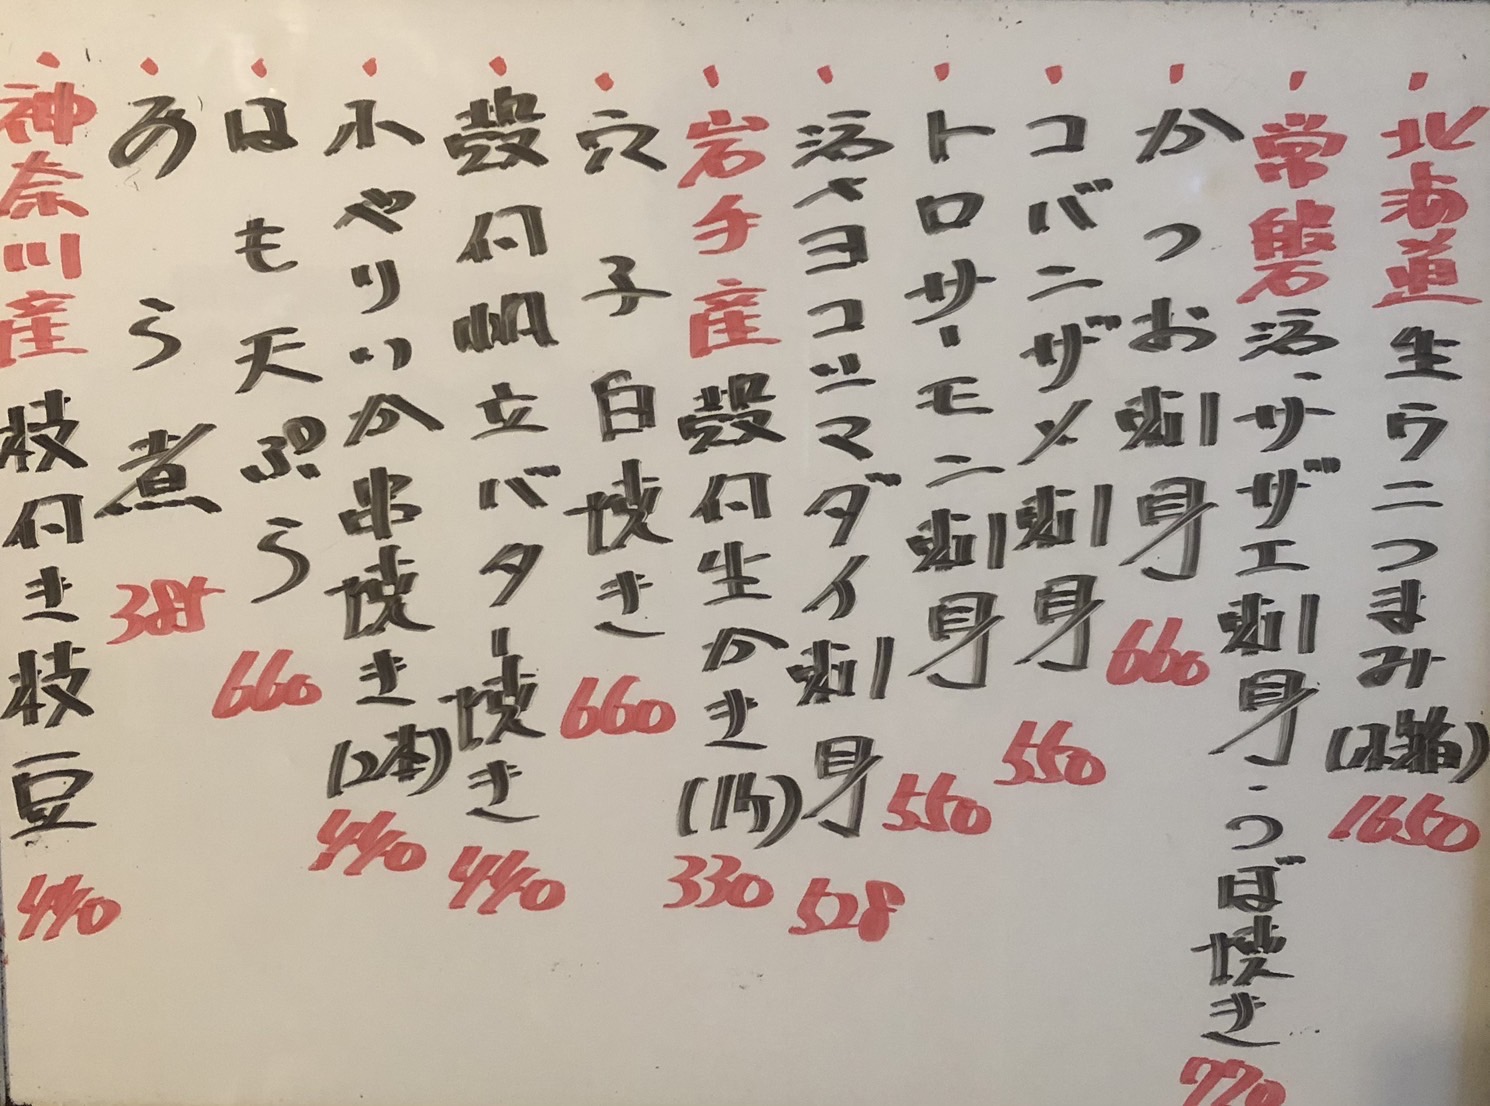 ・北海道生ウニつまみ(小箱)1650
・常磐活サザエ刺身・つぼ焼き770
・かつお刺身660
・コバンザメ刺身550
・トロサーモン刺身550
・活〆ヨコジマダイ刺身528
・岩手産殻付生かき(1ケ)330
・穴子白焼き660
・殻付帆立バター焼き440
・小やりいか串焼き(2本)440
・はも天ぷら660
・あら煮385
・神奈川産枝付き枝豆440